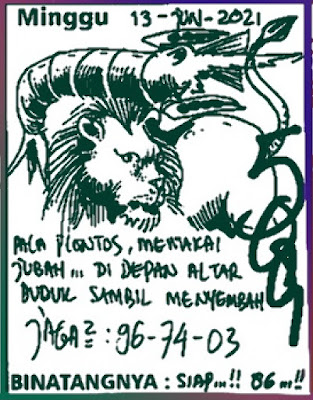 Minggu 13-JUN-2021
PALA PLONTOS, MEMAKAI
JUBAH... DI DEPAN ALTAR
DUDUK SAMBIL MENYEMBAH
JAGA² : 96-74-03
BINATANGNYA : SIAP...!! 86...!!